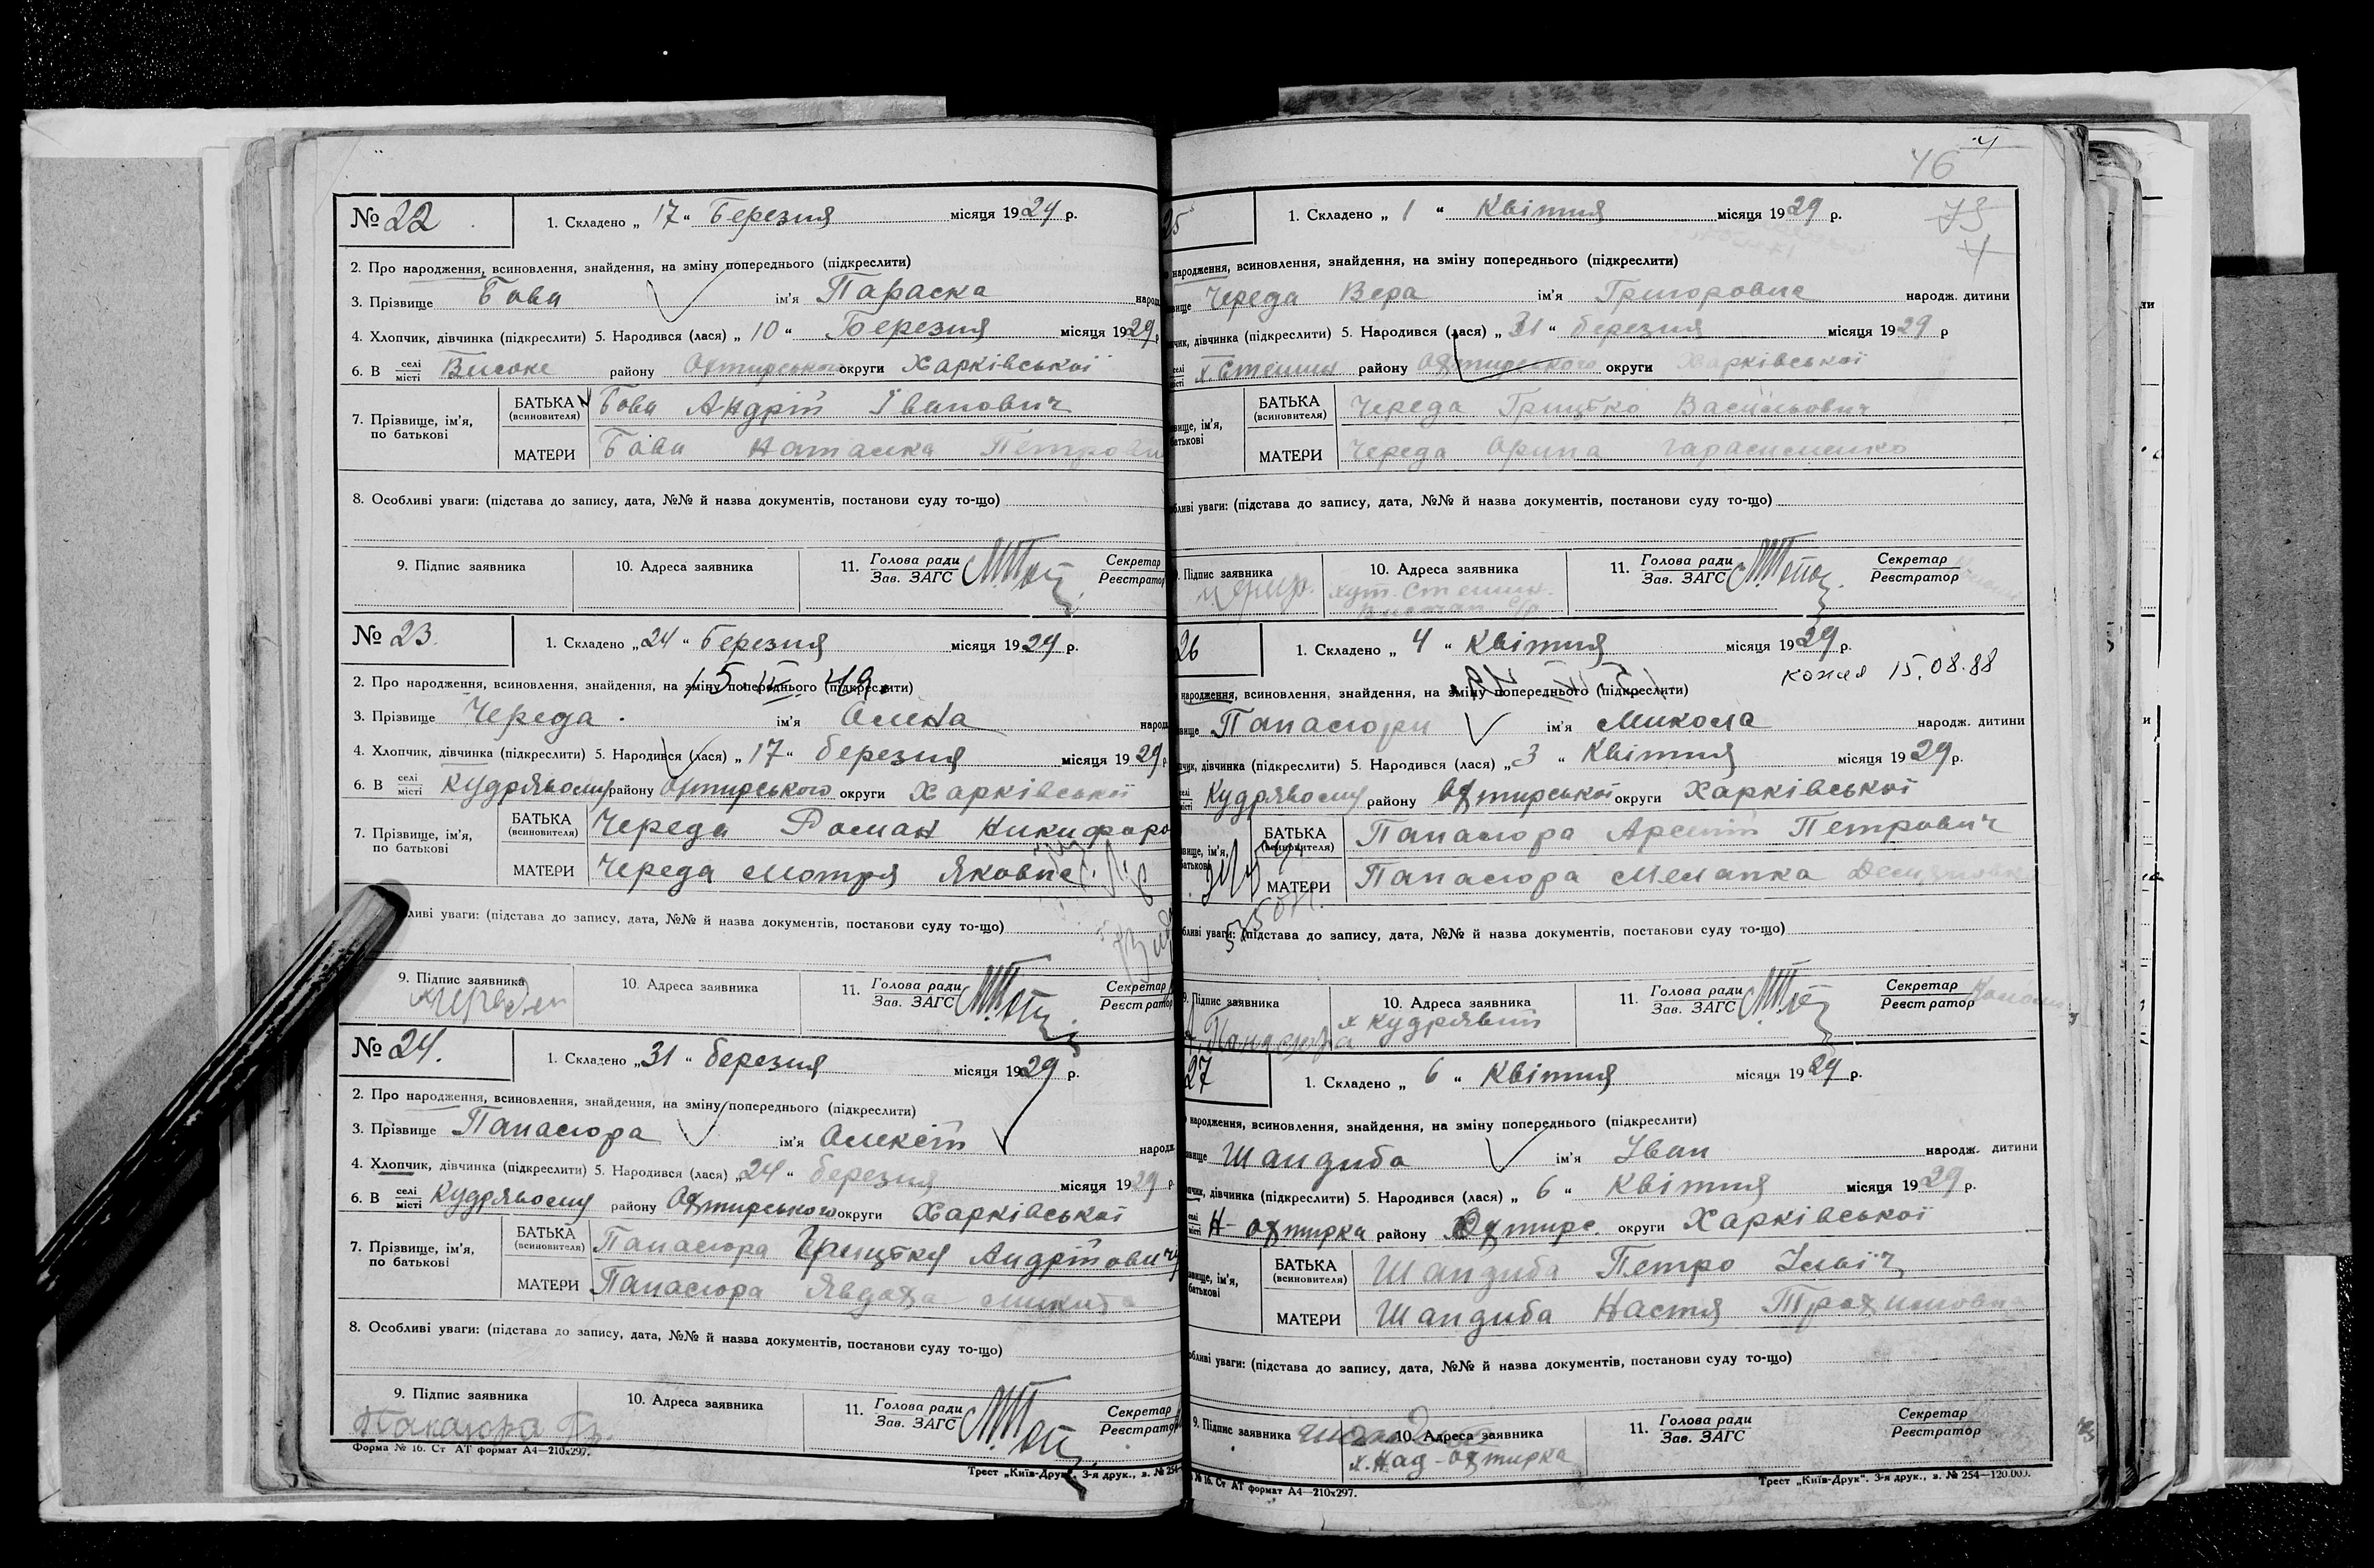 № 22
1. Складено „ 17 “ Березня місяця 1929 р.
2. Про народження, всиновлення, знайдення, на зміну попереднього (підкреслити)
3. Прізвище Бова ім'я Параска народ
4. Хлопчик, дівчинка (підкреслити) 5. Народився (лася) „ 10 “ Березня місяця 1929 р
6. В селі місті Високе району Охтирського округи Харківської
7. Прізвище, ім'я, по батькові
БАТЬКА (всиновителя) Бова Андрій Іванович
МАТЕРИ Бова Наталка Петровн
8. Особливі уваги: (підстава до запису, дата, №№ й назва документів, постанови суду то-що)
9. Підпис заявника 10. Адреса заявника 11. Голова ради Зав. ЗАГС Секретар Реєстратор
№ 23.
1. Складено „ 24 “ Березня місяця 1929 р.
2. Про народження, всиновлення, знайдення, на зміну попереднього (підкреслити)
3. Прізвище Череда. ім'я Олена народ
4. Хлопчик, дівчинка (підкреслити) 5. Народився (лася) „ 17 “ березня місяця 1929 р
6. В селі місті Кудрявому району Охтирського округи Харківської
7. Прізвище, ім'я, по батькові
БАТЬКА (всиновителя) Череда Роман Никифоро
МАТЕРИ Череда Мотря Яковне
ливі уваги: (підстава до запису, дата, №№ й назва документів, постанови суду то-що)
9. Підпис заявника 10. Адреса заявника 11. Голова ради Зав. ЗАГС Секретар Реєстратор
№ 24.
1. Складено „ 31 “ березня місяця 1929 р.
2. Про народження, всиновлення, знайдення, на зміну попереднього (підкреслити)
3. Прізвище Панасюра ім'я Олексій народж
4. Хлопчик, дівчинка (підкреслити) 5. Народився (лася) „ 24 “ березня місяця 1929 р
6. В селі місті Кудрявому району Охтирського округи Харківської
7. Прізвище, ім'я, по батькові
БАТЬКА (всиновителя) Панасюра Грицько Андрійович
МАТЕРИ Панасюра Явдоха Микита
8. Особливі уваги: (підстава до запису, дата, №№ й назва документів, постанови суду то-що)
9. Підпис заявника 10. Адреса заявника 11. Голова ради Зав. ЗАГС Секретар Реєстратор
Панасюра Гр.
Форма № 16. Ст АТ формат А4—210x297.
Трест „Київ-Друк“, 3-я друк., з. № 254
46
25
1. Складено „ 1 “ Квітня місяця 1929 р.
народження, всиновлення, знайдення, на зміну попереднього (підкреслити)
вище Череда Вера ім'я Григоровна народж. дитини
чик, дівчинка (підкреслити) 5. Народився (лася) „ 31 “ березня місяця 1929 р
селі місті х. Стешин району Охтирського округи Харківської
вище, ім'я, батькові
БАТЬКА (всиновителя) Череда Грицько Васильович
МАТЕРИ Череда Орина Гарасименко
бливі уваги: (підстава до запису, дата, №№ й назва документів, постанови суду то-що)
9. Підпис заявника 10. Адреса заявника 11. Голова ради Зав. ЗАГС Секретар Реєстратор
хут. Стешин.
26
1. Складено „ 4 “ Квітня місяця 1929 р.
копия 15.08.88
народження, всиновлення, знайдення, на зміну попереднього (підкреслити)
вище Панасюри ім'я Микола народж. дитини
чик, дівчинка (підкреслити) 5. Народився (лася) „ 3 “ Квітня місяця 1929 р.
селі місті Кудрявому району Охтирської округи Харківської
вище, ім'я, батькові
БАТЬКА (всиновителя) Панасюра Арсеній Петрович
МАТЕРИ Панасюра Меланка
бливі уваги: (підстава до запису, дата, №№ й назва документів, постанови суду то-що)
9. Підпис заявника 10. Адреса заявника 11. Голова ради Зав. ЗАГС Секретар Реєстратор
х Кудрявий
27
1. Складено „ 6 “ Квітня місяця 1929 р.
народження, всиновлення, знайдення, на зміну попереднього (підкреслити)
вище Шандиба ім'я Іван народж. дитини
чик, дівчинка (підкреслити) 5. Народився (лася) „ 6 “ Квітня місяця 1929 р.
селі місті Н-Охтирка району Охтирс. округи Харківської
вище, ім'я, батькові
БАТЬКА (всиновителя) Шандиба Петро Ільїч
МАТЕРИ Шандиба Настя Трохимовна
бливі уваги: (підстава до запису, дата, №№ й назва документів, постанови суду то-що)
9. Підпис заявника 10. Адреса заявника 11. Голова ради Зав. ЗАГС Секретар Реєстратор
х. Над-Охтирка
№ 16. Ст АТ формат А4—210x297.
Трест „Київ-Друк“. 3-я друк., з. № 254—120.000.